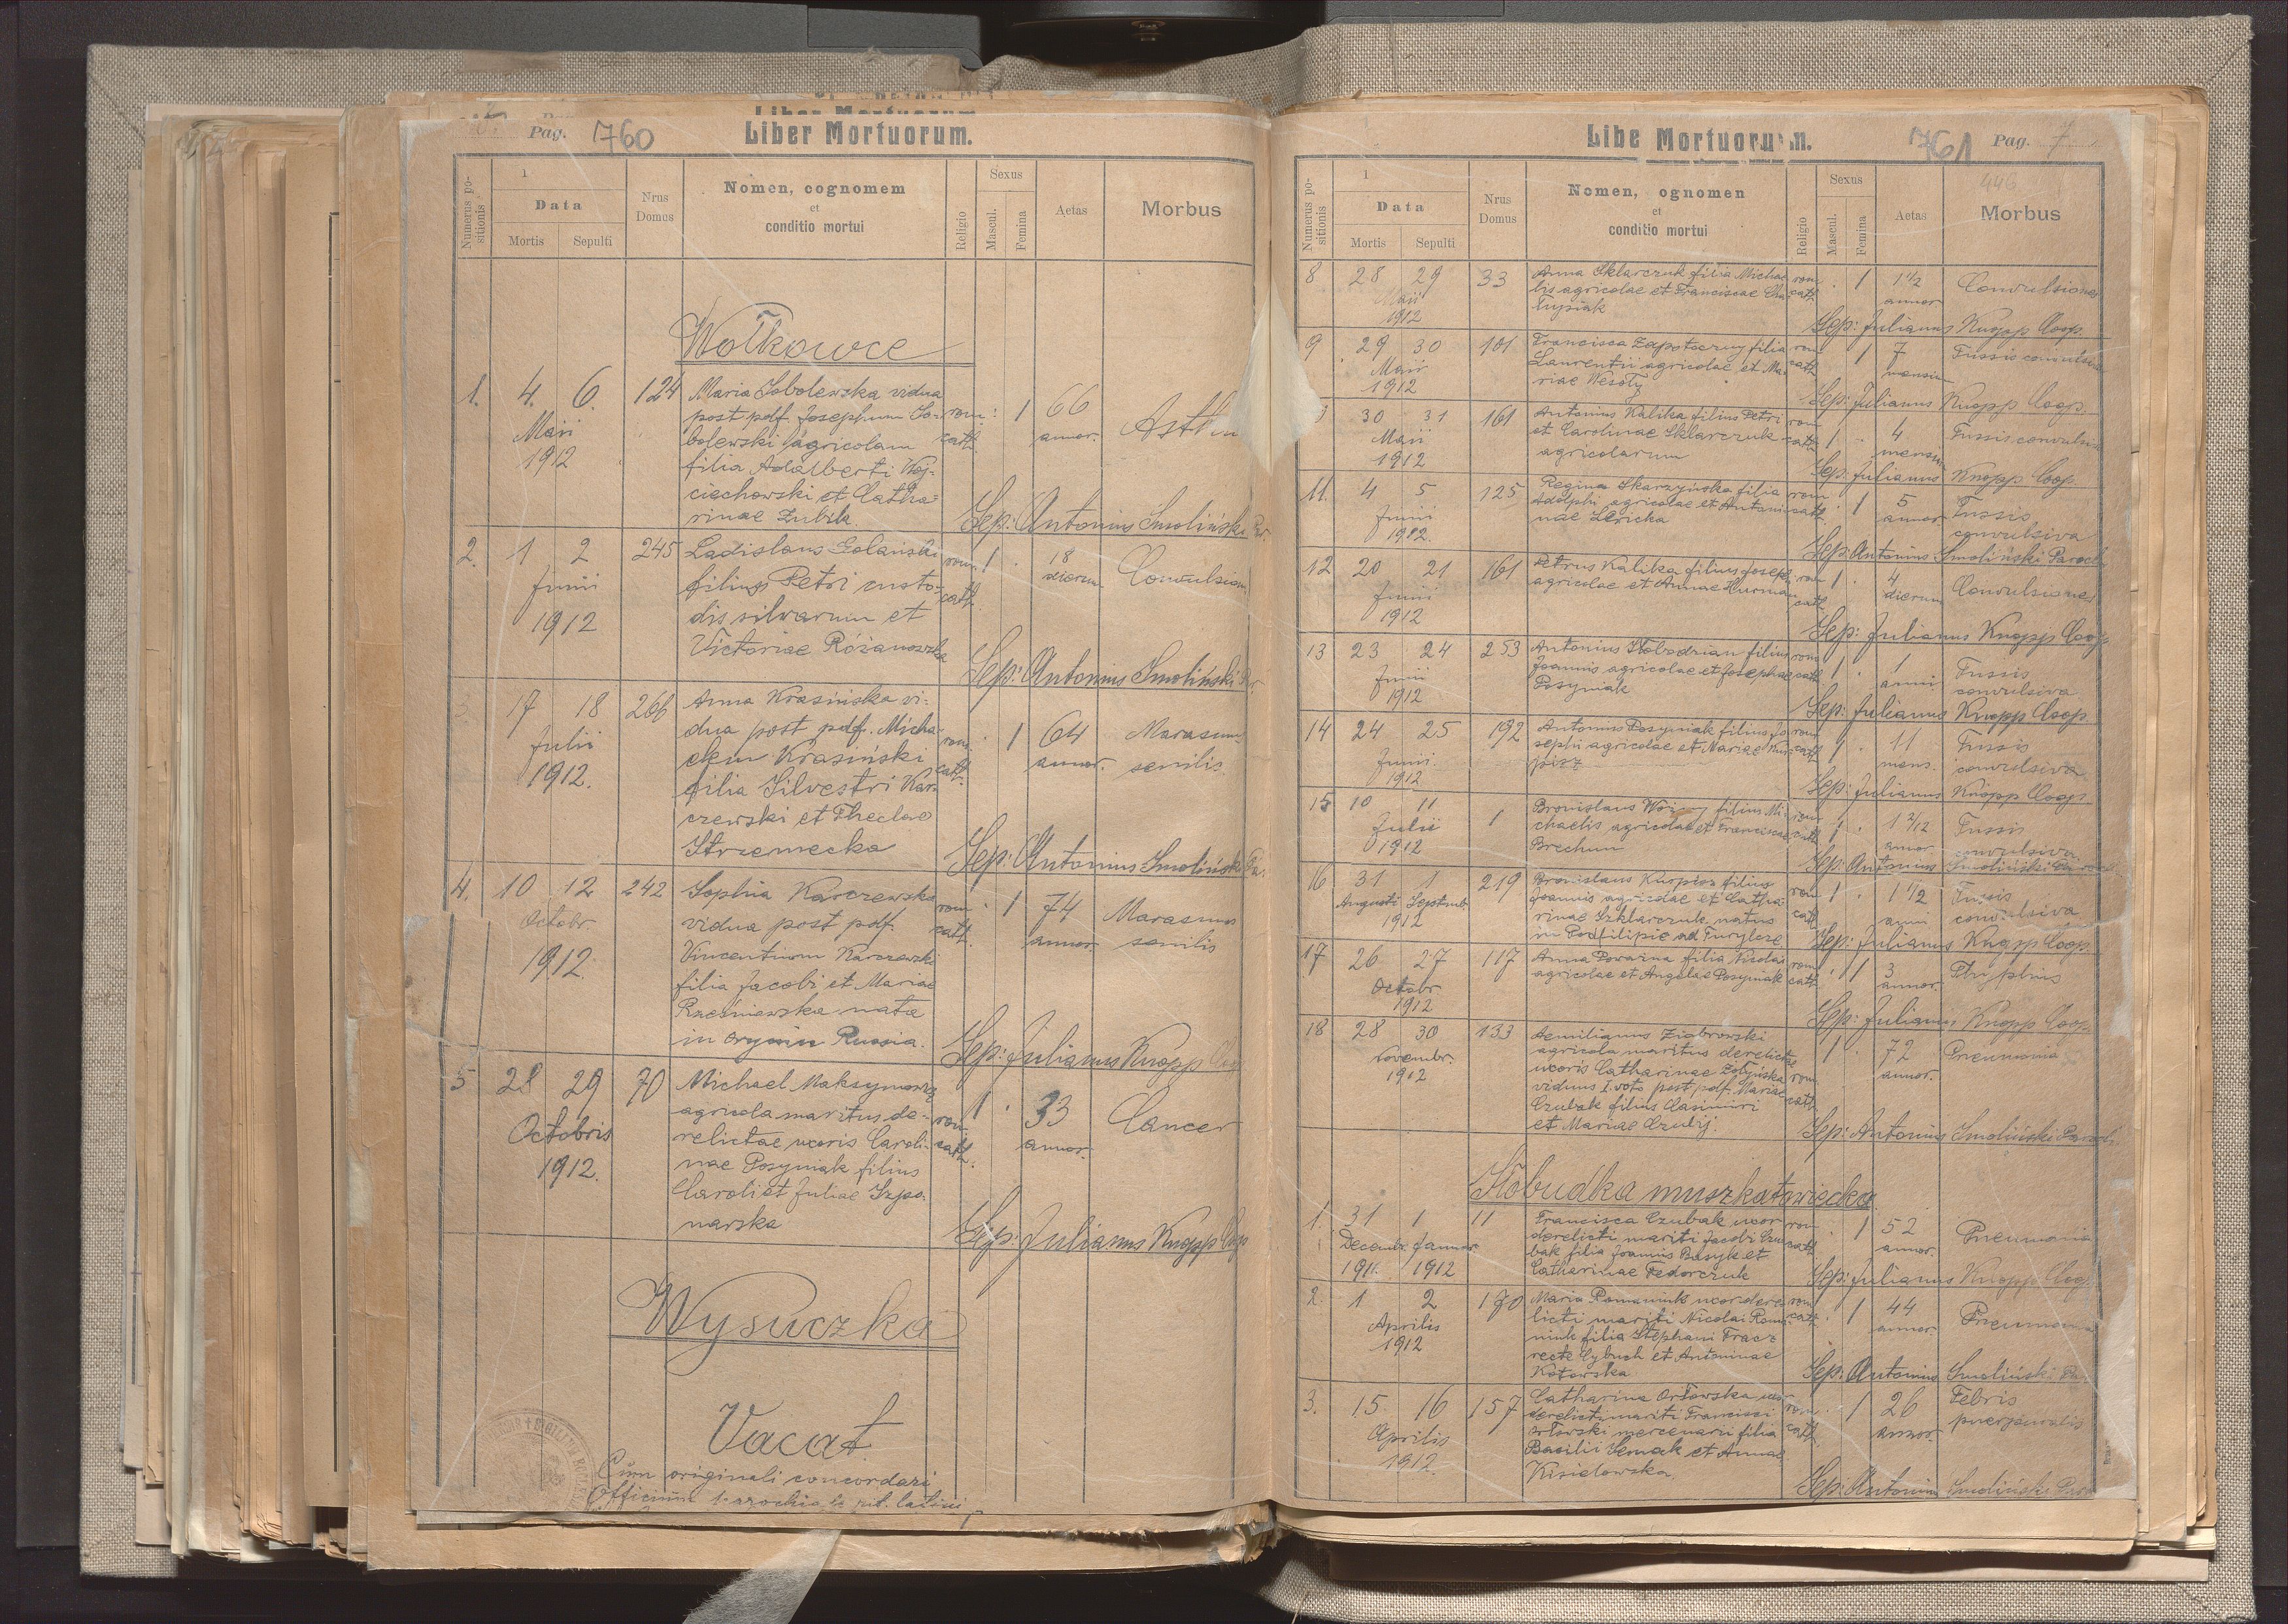 Pag. 760
Liber Mortuorum.
Numerus positionis
1
Data
Mortis Sepulti
Nrus Domus
Nomen, cognomem
et
conditio mortui
Religio
Sexus
Mascul. Femina
Aetas
Morbus
Wołkowce
1. 4. 6. Maii 1912 124
Maria Sobolewska vidua
post pdf. Josephum So-
bolewski agricolam
filia Adalberti Woj-
ciechowski et Catha-
rinae Zubik.
rom. cath. 1 66 annor.
Sep: Antonius Smoliński Par.
2. 1 2 Junii 1912 245
Ladislaus Golański
filius Petri custo-
dis silvarum et
Victoriae Różanowska
rom. cath. 1 18 dierum Convulsion
Sep: Antonius Smoliński
3. 17 18 Julii 1912. 266
Anna Krasińska vi-
dua post pdf. Micha-
elem Krasiński
filia Silvestri Kar-
czewski et Theclae
Strzemecka
rom. cath. 1 64 annor. Marasmus senilis.
Sep: Antonius Smoliński
4. 10 12 Octobr. 1912. 242
Sophia Karczewska
vidua post pdf.
Vincentium Karczewski
filia Jacobi et Mariae
nata
in Russia.
rom. cath. 1 74 annor. Marasmus senilis
Sep: Julianus Knopp
5 28 29 Octobris 1912. 70
Michael Maksymowicz
agricola maritus de-
relictae uxoris Caroli-
nae Posyniak filius
Caroli et Juliae Szpo-
narska
rom. cath. 1 33 annor. Cancer
Sep: Julianus Knopp Coop
Wysuczka
Vacat
Cum originali concordari
Officium parochiale rit. latini
Libe Mortuorum.
761 Pag. 7
Numerus positionis
1
Data
Mortis Sepulti
Nrus Domus
Nomen, ognomen
et
conditio mortui
Religio
Sexus
Mascul. Femina
Aetas
Morbus
8 28 29 Maii 1912 33
Anna Sklarczuk filia Micha-
lis agricolae et Franciscae
rom. cath. 1 1 1/2 annor Convulsiones
Sep: Julianus Knopp Coop.
9 29 30 Maii 1912 101
Francisca Zapotoczny filia
Laurentii agricolae et Ma-
riae Wesoły
rom. cath. 1 7 mensium Tussis convulsiva
Sep: Julianus Knopp Coop.
30 31 Maii 1912 161
Antonius Kalika filius Petri
et Carolinae Sklarczuk
agricolarum
rom. cath. 1 4 mensium Tussis convulsiva
Sep: Julianus Knopp Coop.
11. 4 5 Junii 1912. 125
Regina Skarzyńska filia
Adolphi agricolae et Antoni-
nae
rom. cath. 1 5 annor Tussis convulsiva
Sep: Antonius Smoliński Paroch
12 20 21 Junii 1912 161
Petrus Kalika filius Josephi
agricolae et Annae Hurman
rom cath. 1 4 dierum Convulsiones
Sep: Julianus Knopp Coop
13 23 24 Junii 1912 253
Antonius Słobodzian filius
Joannis agricolae et Josephae
Posyniak
rom cath. 1 1 anni Tussis convulsiva
Sep: Julianus Knopp Coop.
14 24 25 Junii 1912 192
Antonius Posyniak filius Jo-
sephi agricolae et Mariae Kus-
pisz
rom. cath. 1 11 mens. Tussis convulsiva
Sep: Julianus Knopp Coop.
15 10 11 Julii 1912 1
Bronislaus filius Mi-
chaelis agricolae et Franciscae
Brechun
rom. cath. 1 1 2/12 annor Tussis convulsiva
Sep: Antonius Smoliński
16 31 1 Augusti Septmb. 1912 219
Bronislaus Kuspisz filius
Joannis agricolae et Catha-
rinae Szklarczuk natus
in Podfilipie ad Turylcze
rom. cath. 1 1 1/2 anni Tussis convulsiva
Sep: Julianus Knopp Coop.
17 26 27 Octobr. 1912 117
Anna Powarna filia Nicolai
agricolae et Angelae Posyniak
rom. cath. 1 3 annor.
Sep: Julianus Knopp Coop
18 28 30 Novembr. 1912 133
Aemilianus Ziabrowski
agricola maritus derelictae
uxoris Catharinae
viduus I. voto post pdf. Mariae
Czubak filius Casimiri
et Mariae Czubij.
rom. cath. 1 72 annor. Pneumonia
Sep: Antonius Smoliński Paroch
Słobudka muszkatowiecka
1. 31 1 Decembr. Januar 1911. 1912 11
Francisca Czubak uxor
derelicti mariti Jacobi Czu-
bak filia Joannis Basyk et
Catharinae Fedorczuk
rom. cath. 1 52 annor. Pneumonia
Sep: Julianus Knopp Coop.
2. 1 2 Aprilis 1912 170
Maria Romaniuk uxor dere-
licti mariti Nicolai Roma-
niuk filia Stephani Tracz
recte Cybuch et Antoninae
Kotowska
rom. cath. 1 44 annor. Pneumonia
Sep: Antonius Smoliński
3. 15 16 Aprilis 1912. 157
Catharina Orłowska uxor
derelicti mariti Francisci
Orłowski mercenarii filia
Basilii Semak et Annae
Kisielowska.
rom. cath. 1 26 annor. Febris puerperalis
Sep: Antonius Smoliński Paro